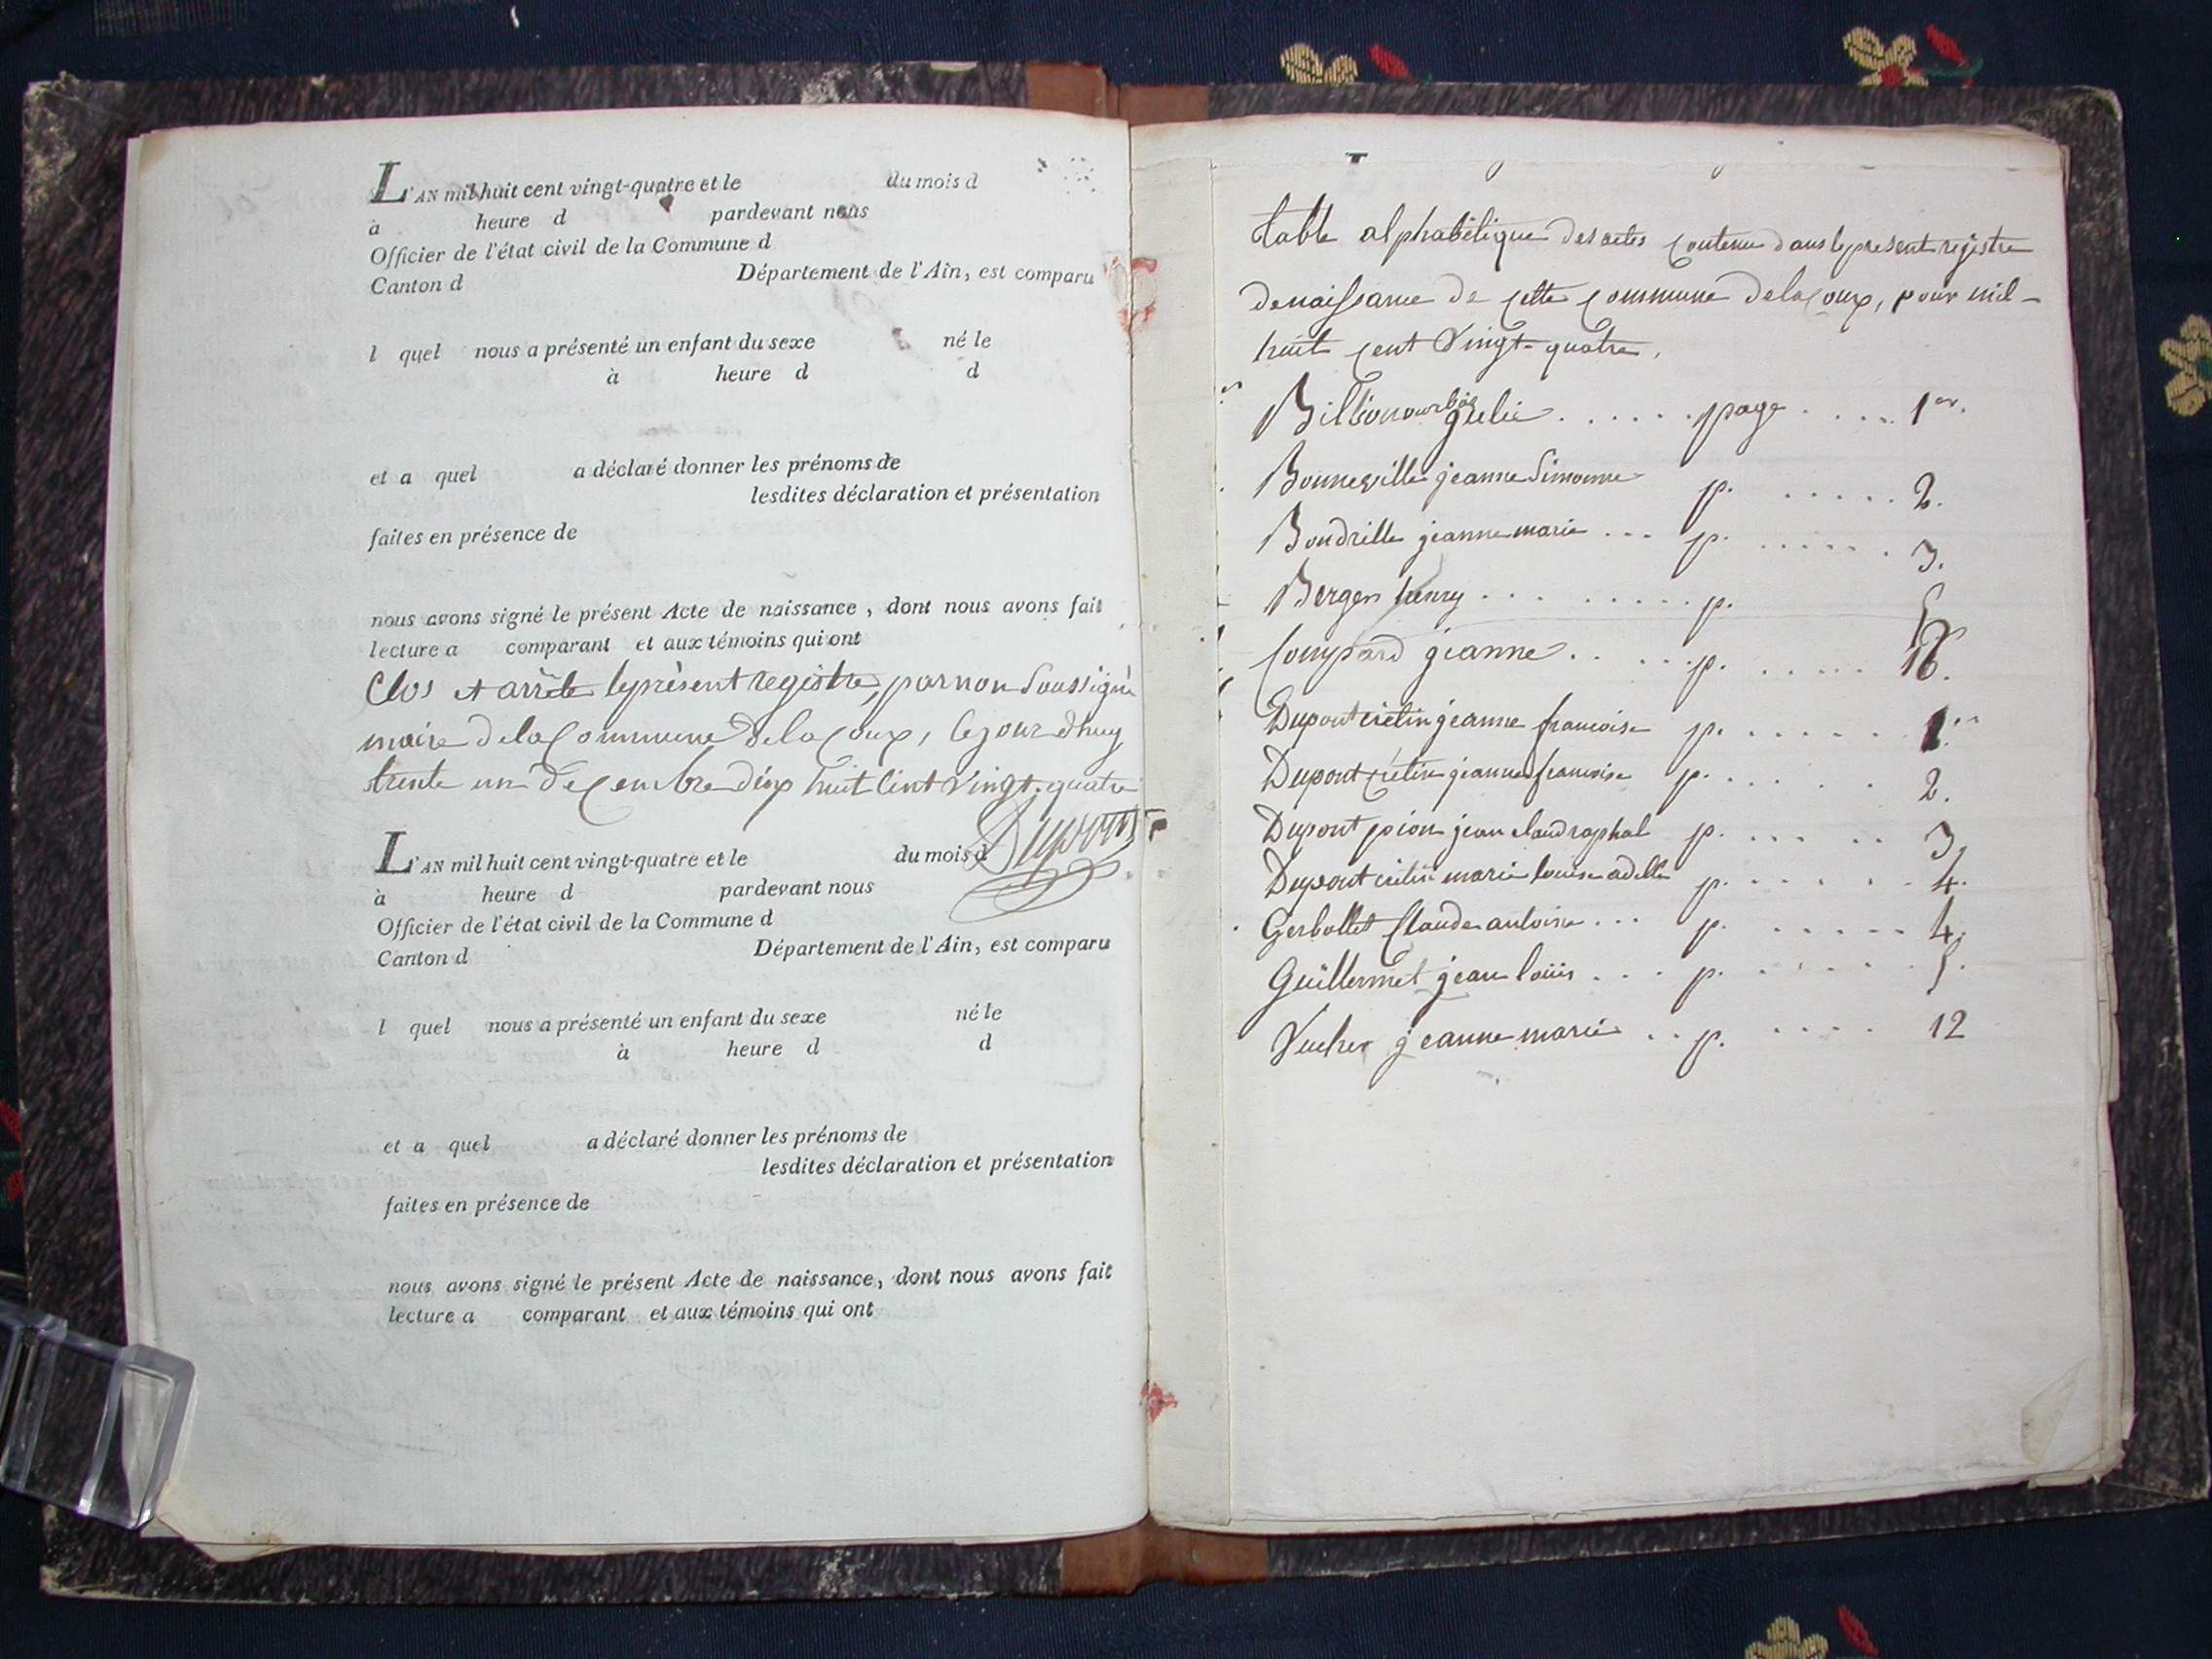 L'AN mil huit cent vingt-quatre et le du mois d
à heure d pardevant nous
Officier de l'état civil de la Commune d
Canton d Département de l'Ain, est comparu
l quel nous a présenté un enfant du sexe né le
à heure d d
et a quel a déclaré donner les prénoms de
lesdites déclaration et présentation
faites en présence de
nous avons signé le présent Acte de naissance, dont nous avons fait
lecture a comparant et aux témoins qui ont
Clos et arrêté le présent registre, par nou Soussigné
maire de la Commune de la Coux, le jour d'huy
trente un decembre dix huit cent vingt-quatre
Dupont
L'AN mil huit cent vingt-quatre et le du mois d
à heure d pardevant nous
Officier de l'état civil de la Commune d
Canton d Département de l'Ain, est comparu
l quel nous a présenté un enfant du sexe né le
à heure d d
et a quel a déclaré donner les prénoms de
lesdites déclaration et présentation
faites en présence de
nous avons signé le présent Acte de naissance, dont nous avons fait
lecture a comparant et aux témoins qui ont
table alphabétique des actes contenu dans le present registre
de naissance de cette commune de la Coux, pour mil-
huit cent vingt-quatre.
julie ..... page .... 1er.
Bonneville jeanne Simonne p. ..... 2.
Boudrille jeanne marie ... p. ..... 3.
Berger henry ......... p. 5
Compard jeanne .. ... p. .....
Dupont cretin jeanne francoise p. ...... 1er
Dupont cretin jeanne francoise p. ..... 2.
Dupont pion jean claud raphal p. ..... 3.
Dupont cretin marie louise adelle p. ..... 4.
Gerbollet Claude antoine ... p. ..... 4.
Guillermet jean louis ... p. ...... 5.
Vucher jeanne marie .. p. .... 12